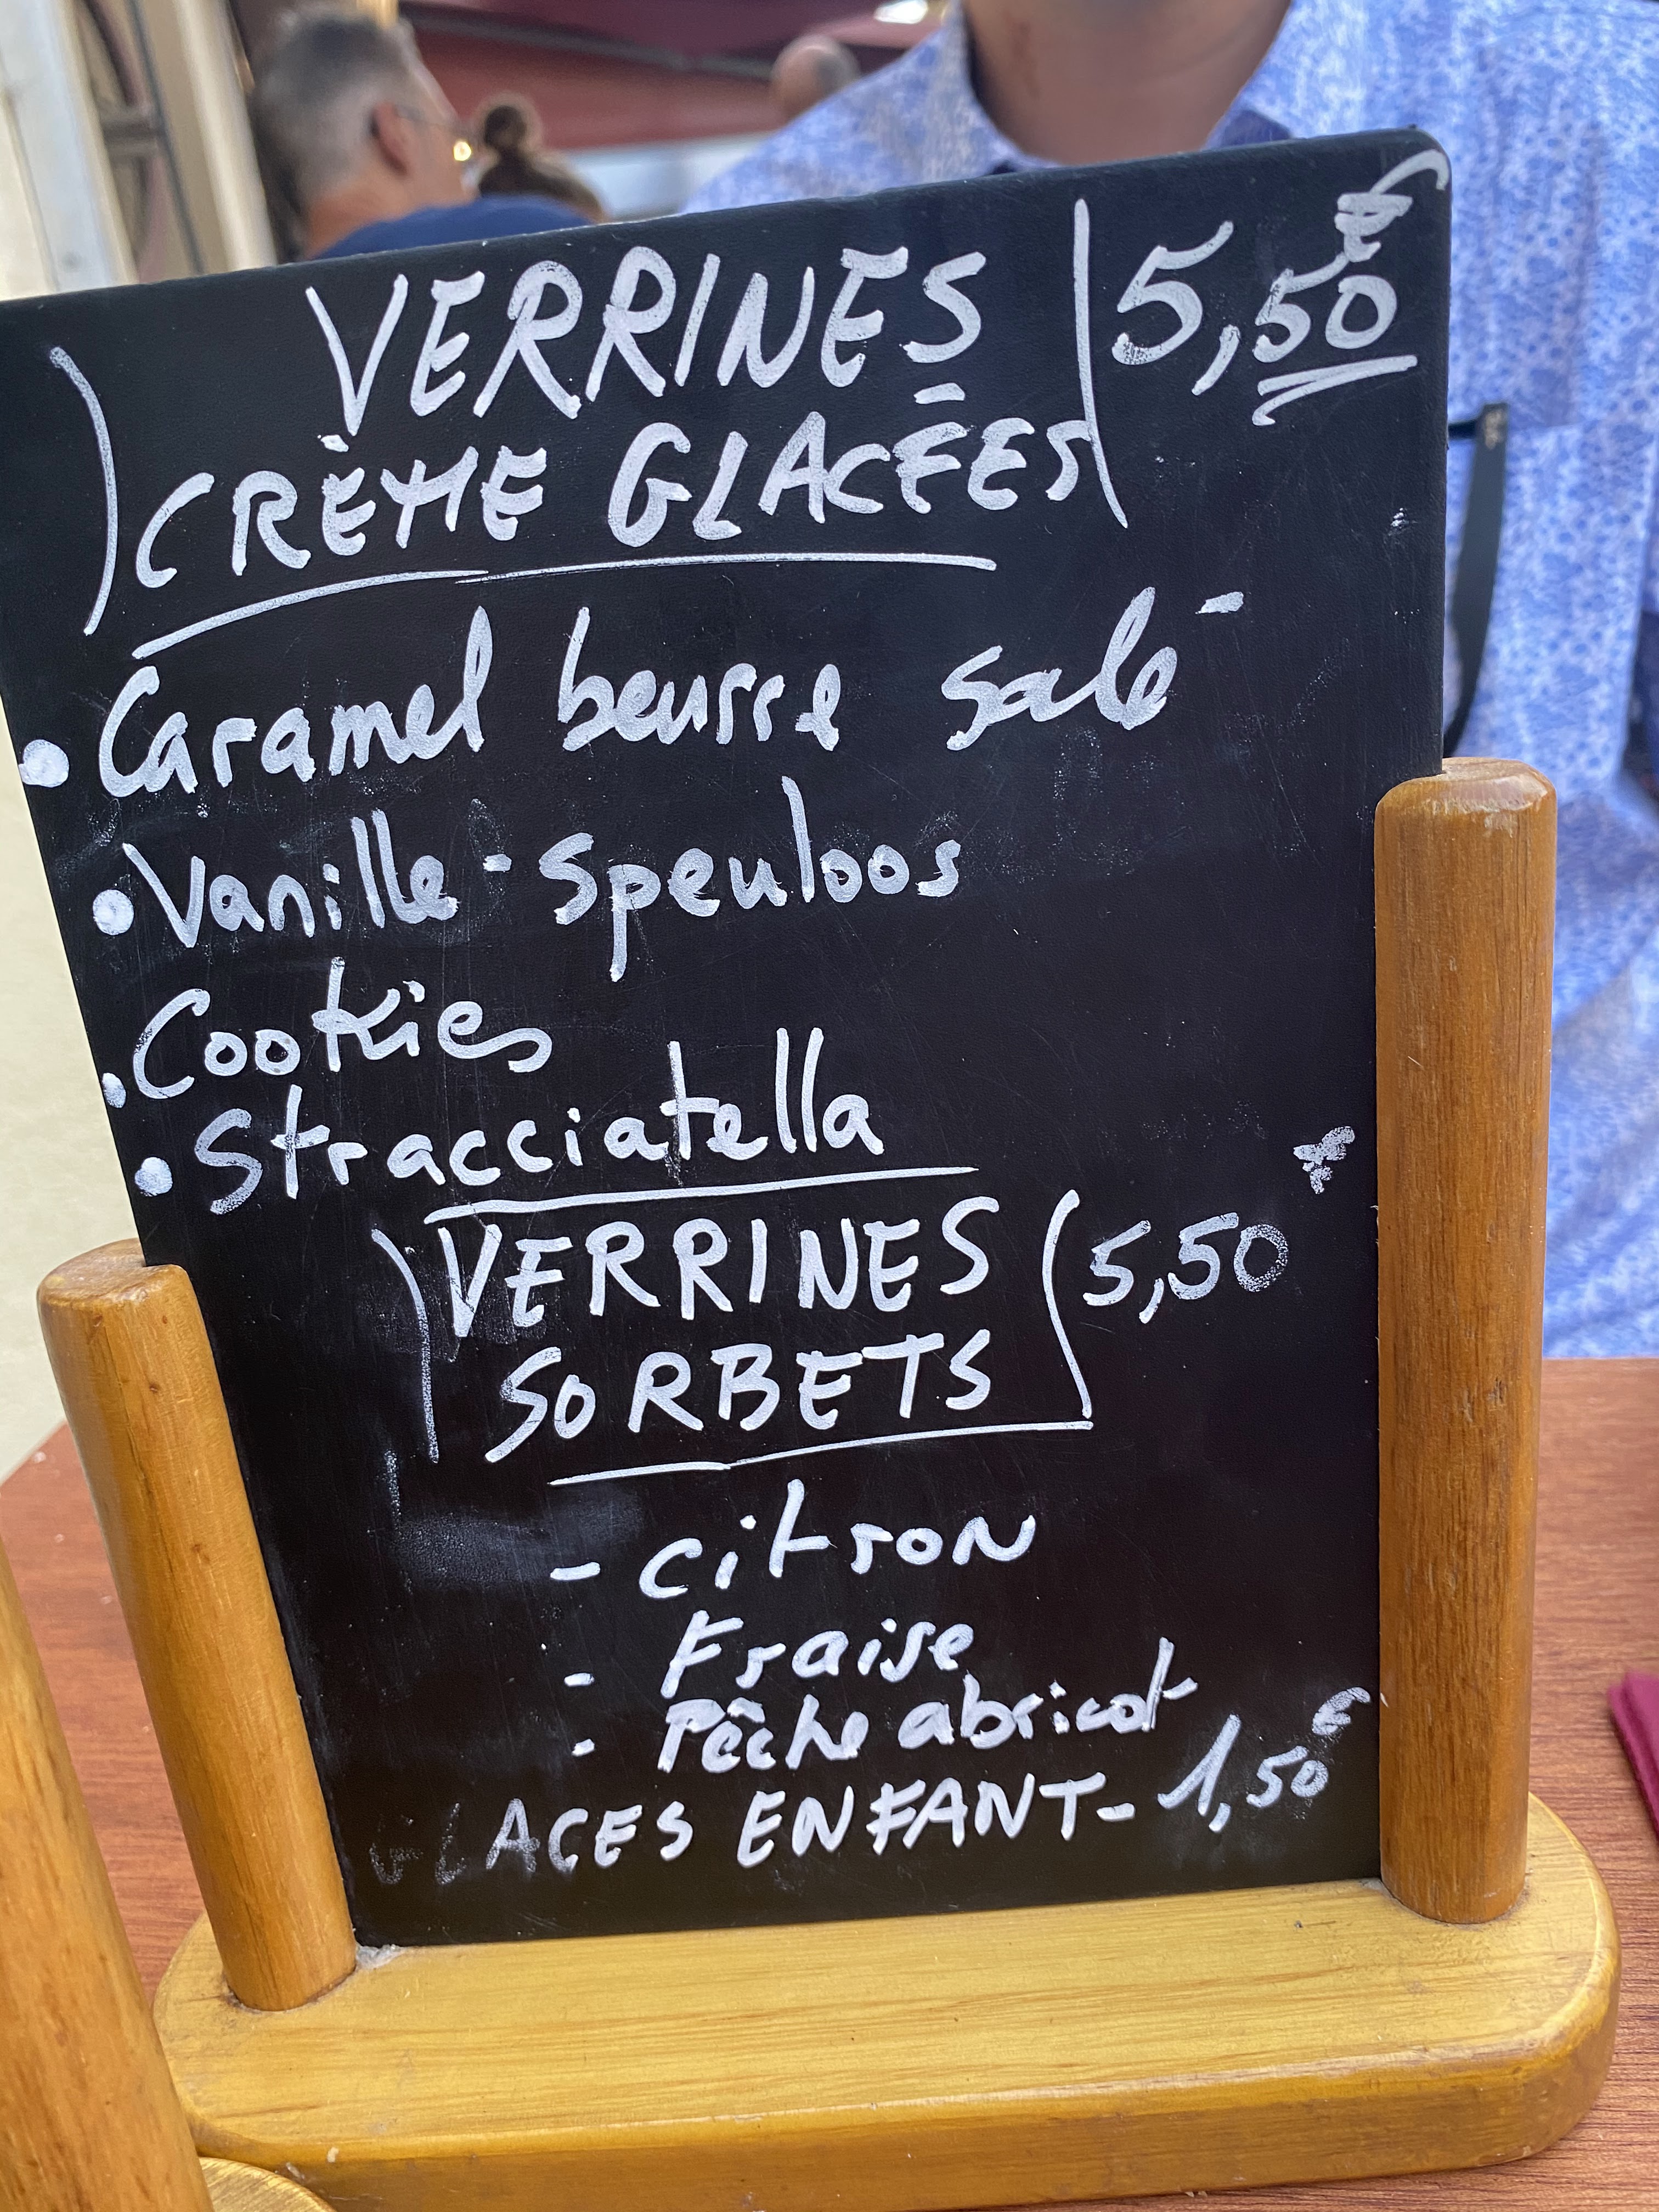 VERRINES 5,50 €
CRÈME GLACÉES
• Caramel beurre salé
• Vanille - Speuloos
• Cookies
• Stracciatella
VERRINES 5,50 €
SORBETS
- citron
- Fraise
- Pêche abricot
GLACES ENFANT - 1,50 €